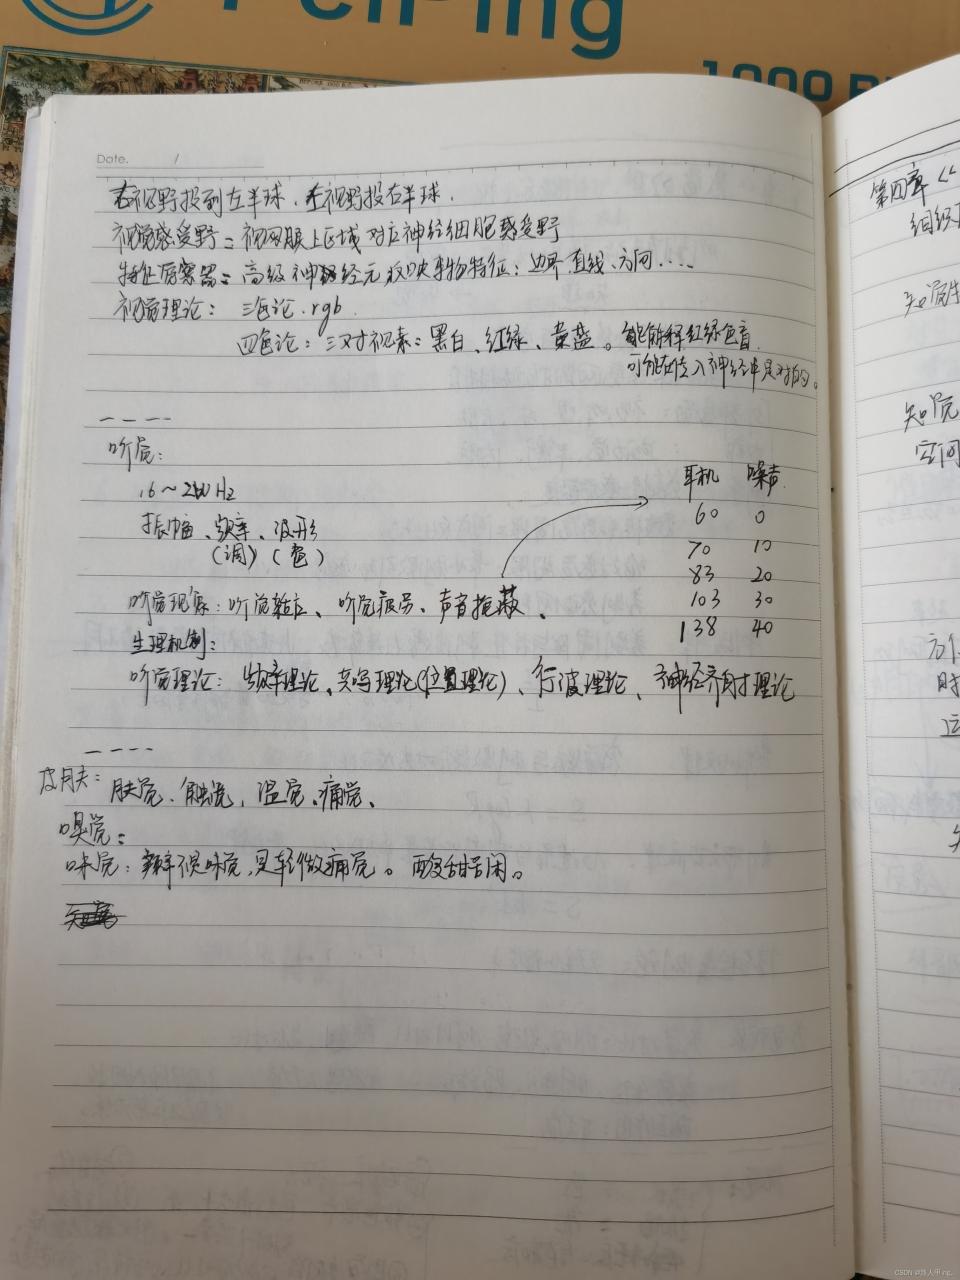 PeiPing
1000
Date. /
右视野投到左半球．左视野投右半球．
视觉感受野：视网膜上区域对应神经细胞感受野
特征觉察器：高级神经元反映事物特征：边界、直线、方向．．．．
视觉理论：三色论．rgb
四色论：三对视素：黑白、红绿、黄蓝。能解释红绿色盲
可能在传入神经中是对拍的。
----
听觉：
16～2000 Hz
振幅、频率、波形
(调)(色)
耳机 噪声
60 0
70 10
83 20
103 30
138 40
听觉现象：听觉适应、听觉疲劳、声音掩蔽、
生理机制：
听觉理论：频率理论、共鸣理论(位置理论)、行波理论、神经齐射理论
----
皮肤：肤觉、触觉，温觉、痛觉、
嗅觉：
味觉：辣不是味觉，是轻微痛觉。酸甜苦闲。
第四章《
组织
知觉
知觉
空间
方位
时
运
CSDN